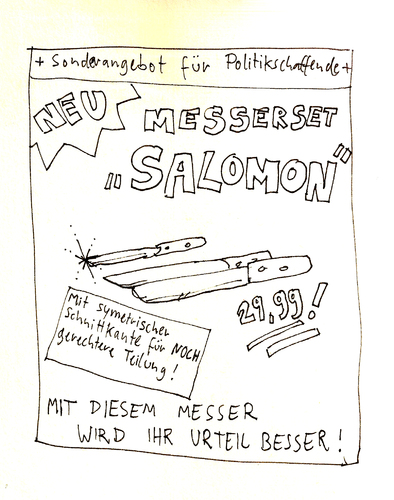 + Sonderangebot für Politikschaffende +
NEU
MESSERSET
„SALOMON"
29,99!
Mit symetrischer
Schnittkante für NOCH
gerechtere Teilung!
MIT DIESEM MESSER
WIRD IHR URTEIL BESSER!